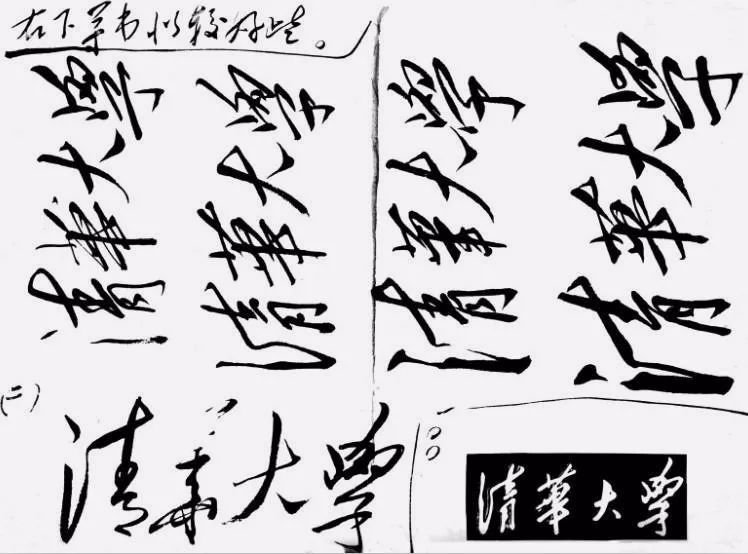 右下草书似较好些。
清华大学
清华大学
清华大学
清华大学
(二)
清华大学
清華大學